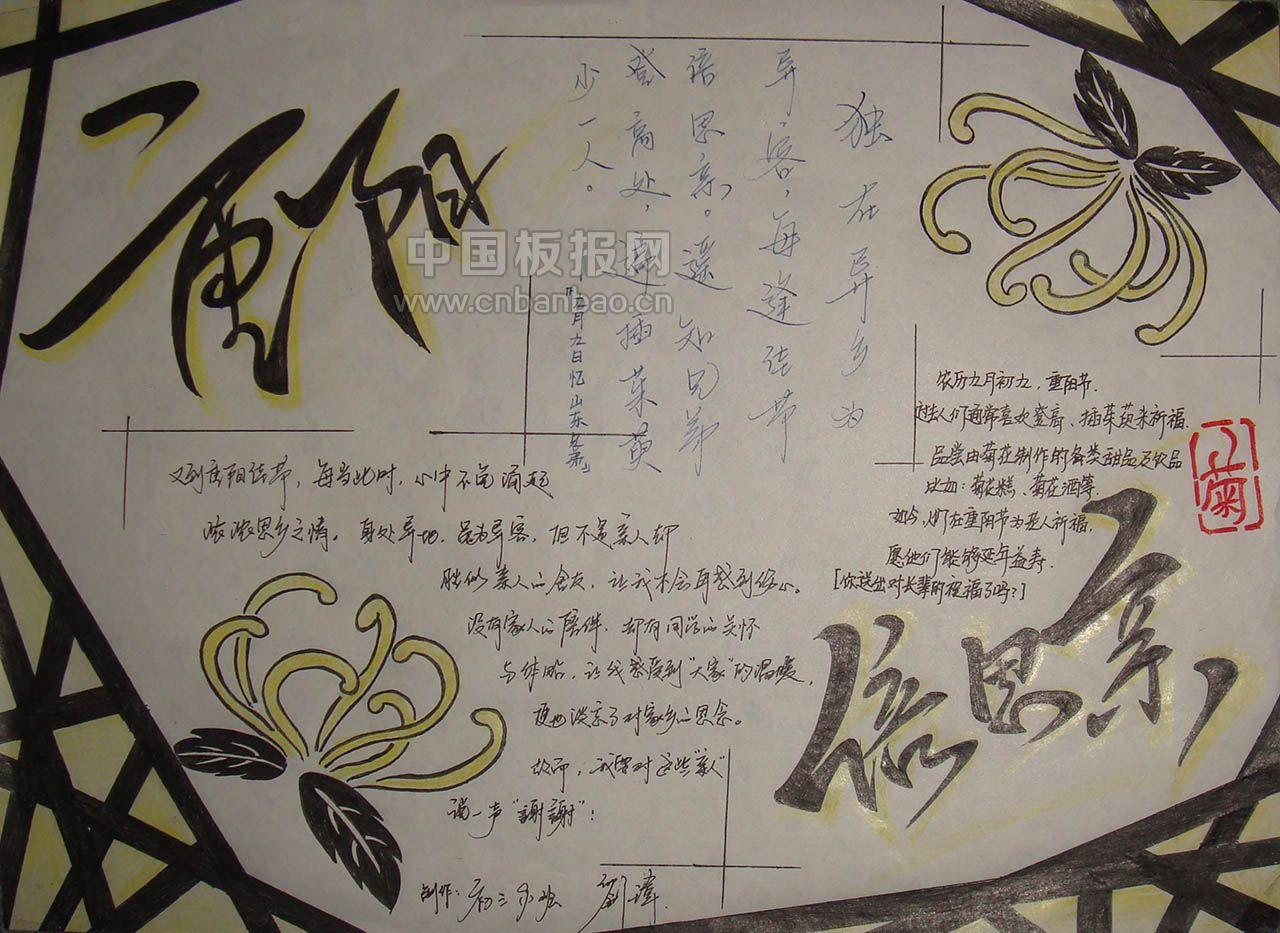 重阳
独在异乡为
异客，每逢佳节
倍思亲。遥知兄弟
登高处，遍插茱萸
少一人。
中国板报网
www.cnbanbao.cn
农历九月初九，重阳节.
过去人们通常喜欢登高、插茱萸来祈福.
品尝由菊花制作的各类甜品及饮品
比如：菊花糕、菊花酒等.
如今，人们在重阳节为老人祈福.
愿他们能够延年益寿.
[你送出对长辈的祝福了吗?]
又到重阳佳节，每当此时，心中不免涌起
浓浓思乡之情。身处异地，虽为异客，但不是亲人却
胜似亲人的舍友，让我不会再感到伤心。
没有家人的陪伴，却有同学的关怀
与体贴，让我感受到“大家”的温暖，
更也淡忘了对家乡的思念。
故而，我要对这些“亲人”
说一声“謝謝”！
倍思亲
制作：初三 班 劉